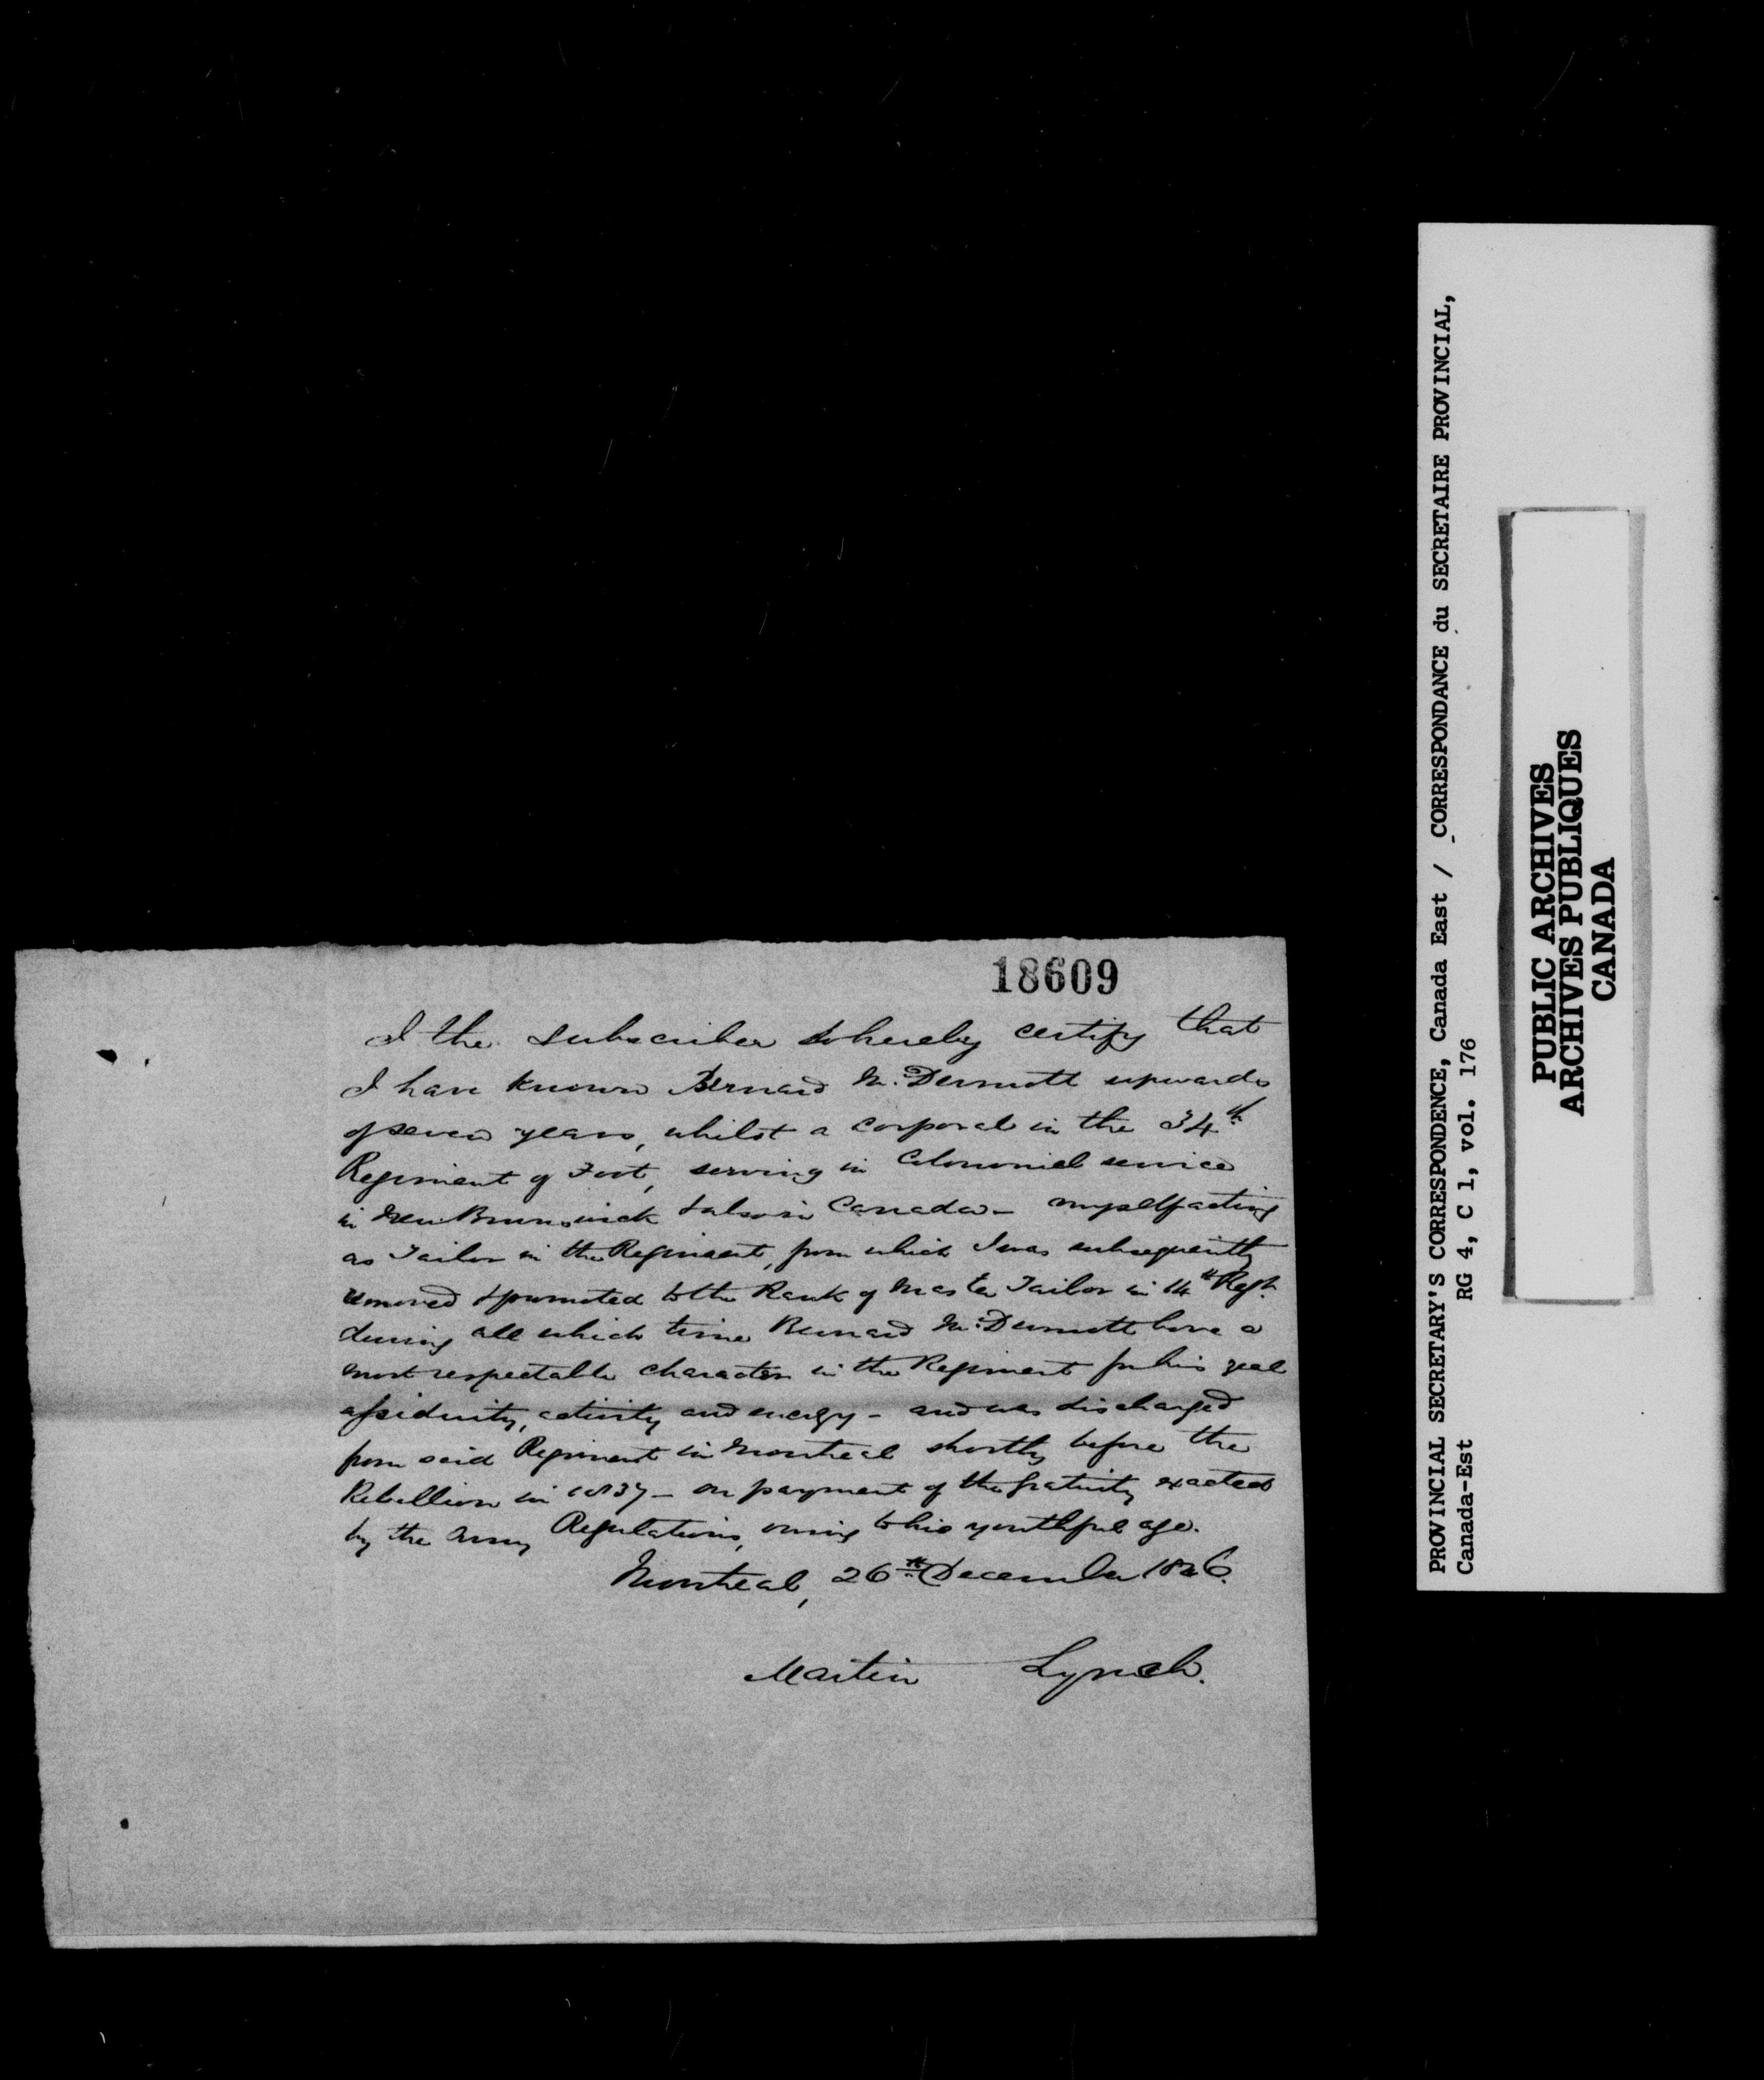 18609
I the subscriber do hereby certify that
I have known Bernard McDermott upwards
of seven years, whilst a corporal in the 34th
Regiment of Foot, serving in Colonniel service
in New Brunswick & also in Canada - myself acting
as Tailor in the Regiment, from which I was subsequently
removed & promoted to the Rank of Master Tailor in 14th Regt.
during all which time Bernard McDermott bore a
most respectable character in the Regiment for his zeal
assiduity, activity and energy - and was discharged
from said Regiment in Montreal shortly before the
Rebellion in 1837 - on payment of the gratuity exacted
by the Army Regulations, owing to his youthful age.
Montreal, 26th December 1846.
Martin Lynch.
PROVINCIAL SECRETARY'S CORRESPONDENCE, Canada East / CORRESPONDANCE du SECRETAIRE PROVINCIAL,
Canada-Est RG 4, C 1, vol. 176
PUBLIC ARCHIVES
ARCHIVES PUBLIQUES
CANADA